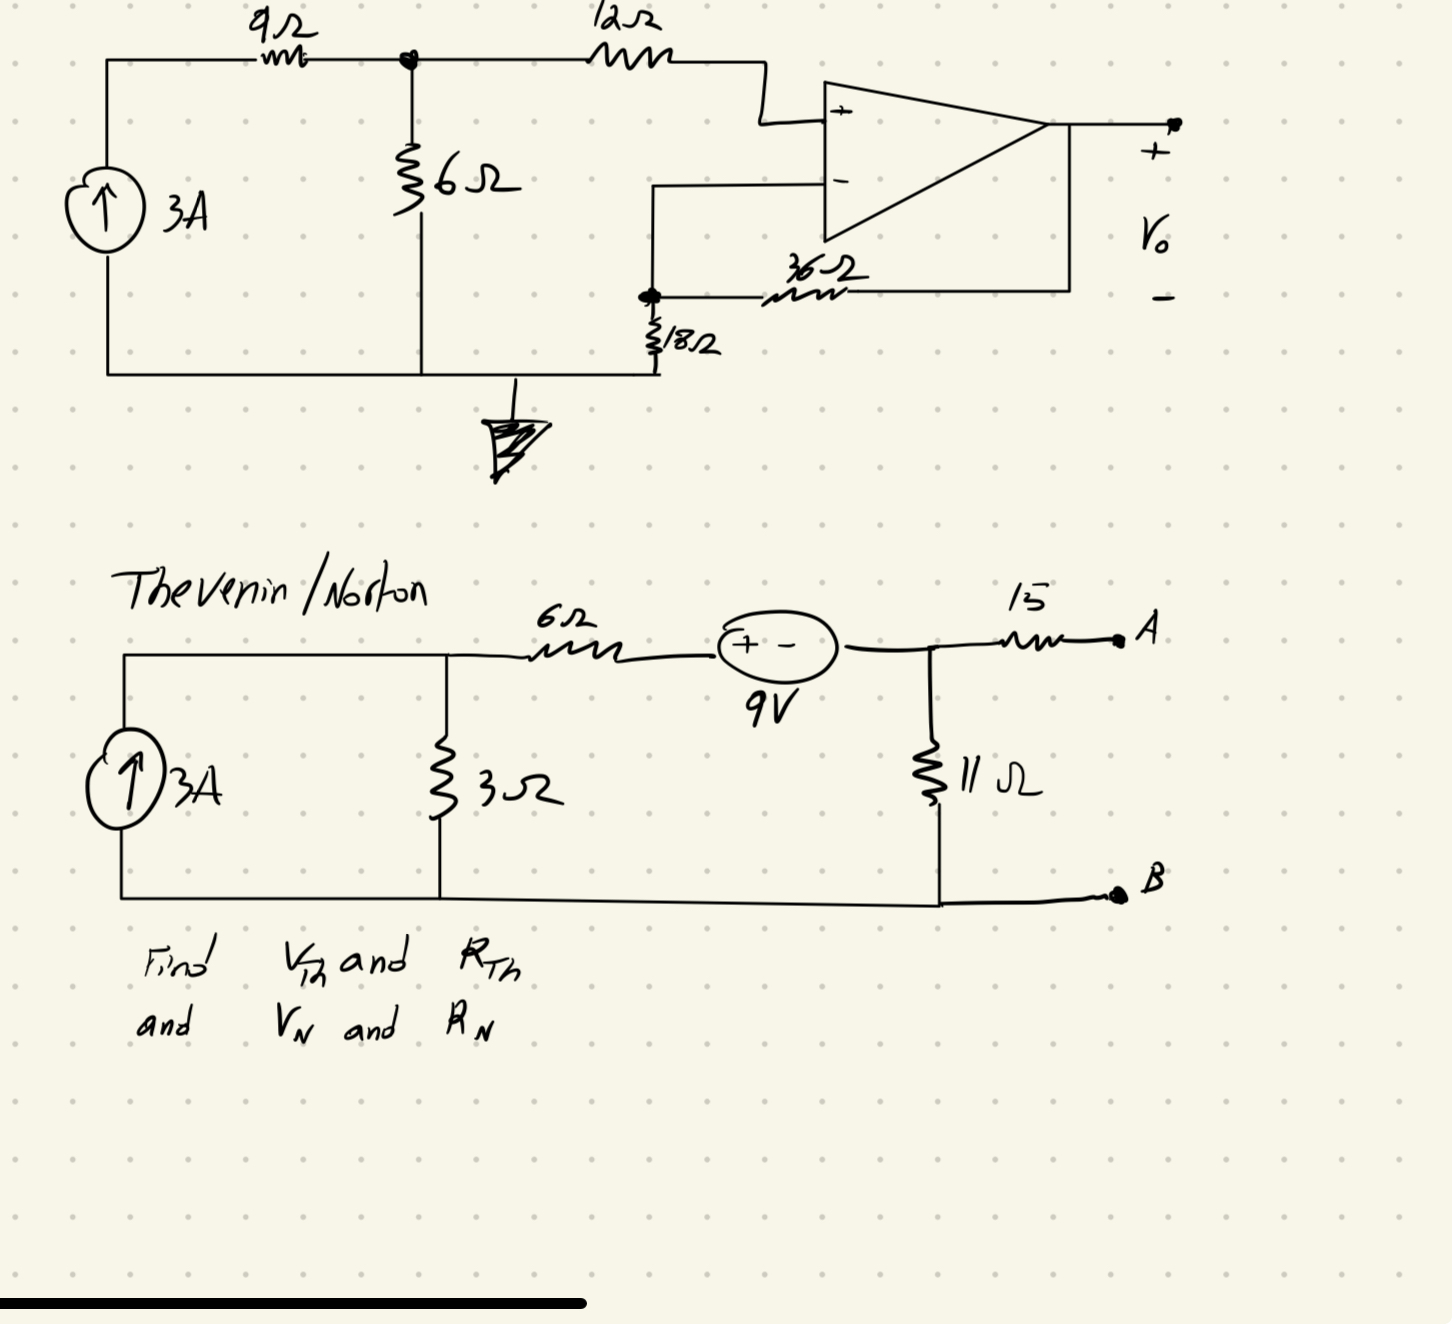 9Ω 12Ω
+
3A 6Ω
-
+
V₀
-
36Ω
18Ω
Thevenin/Norton
6Ω
+ -
9V
15
A
3A 3Ω 11Ω
B
Find V_Th and R_Th
and V_N and R_N